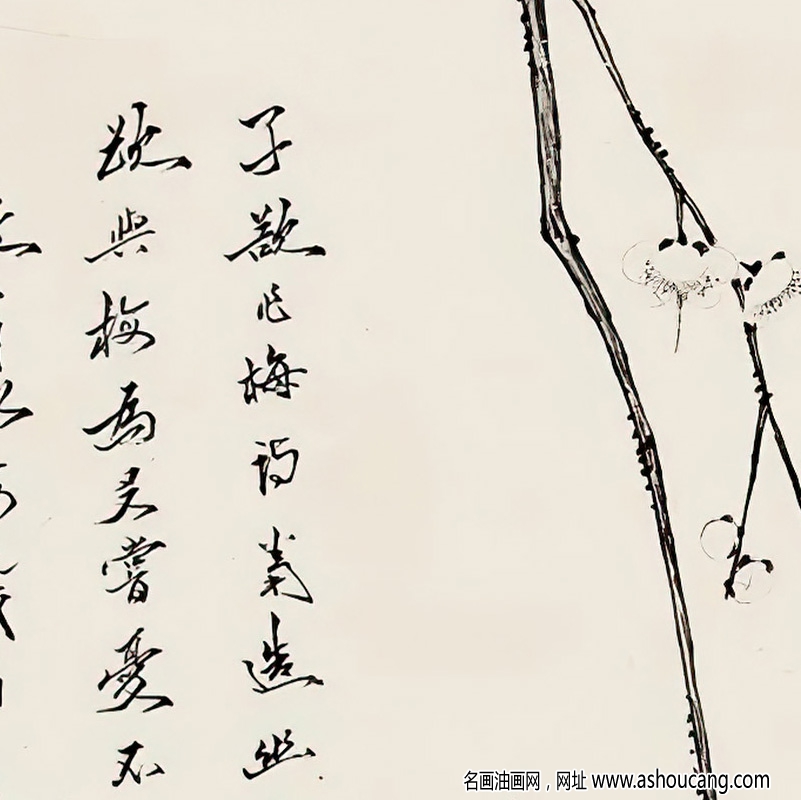 子欲作梅詩當造幽
欲與梅為友嘗憂不
名画油画网，网址 www.ashoucang.com